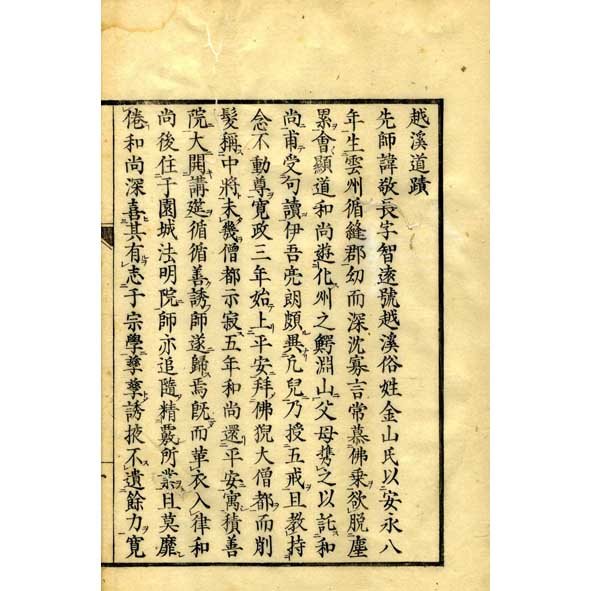 越溪道蹟
先師諱敬長字智遠號越溪俗姓金山氏以安永八
年生雲州循縫郡幼而深沈寡言常慕佛乘欲脫塵
累會顯道和尚遊化州之鰐淵山父母携之以託和
尚甫受句讀伊吾亮朗頗異凡兒乃授五戒且教持
念不動尊寬政三年始上平安拜佛猊大僧都而削
髮稱中將未幾僧都示寂五年和尚還平安寓積善
院大開講筵循循善誘師遂歸焉旣而革衣入律和
尚後住于園城法明院師亦追隨精覈所業且莫靡
倦和尚深喜其有志于宗學孳孳誘掖不遺餘力寬